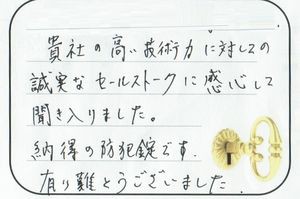 貴社の高い技術力に対しての
誠実なセールストークに感心して
聞き入りました。
納得の防犯錠です.
有り難とうございました.